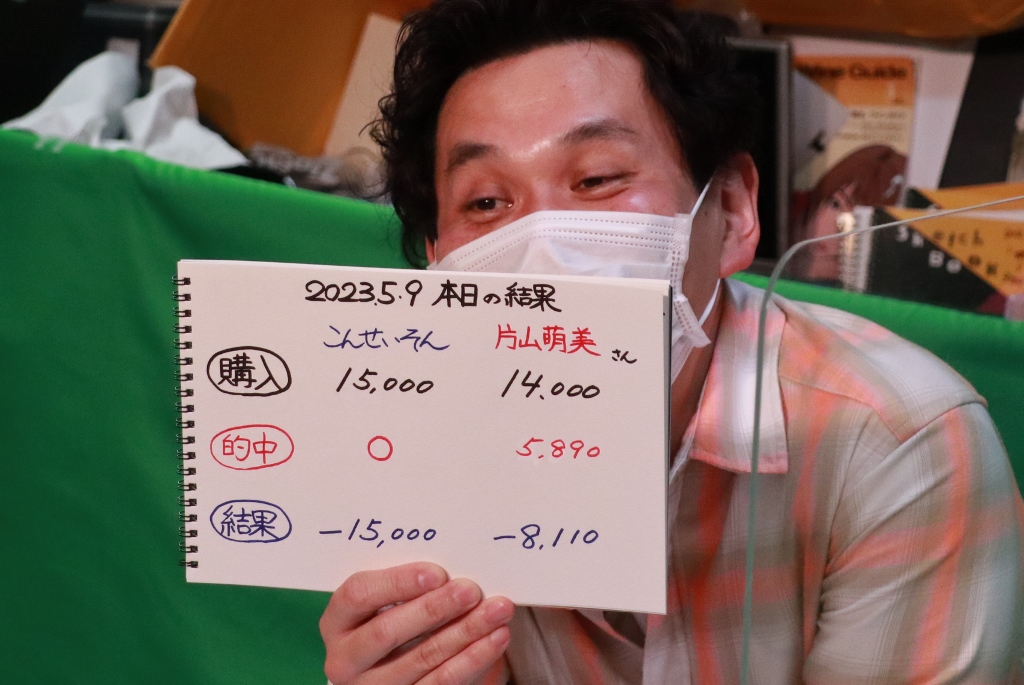 2023.5.9 本日の結果
こんせいそん 片山萌美さん
購入 15,000 14.000
的中 0 5.890
結果 -15,000 -8.110
Guide
Sketch
Book